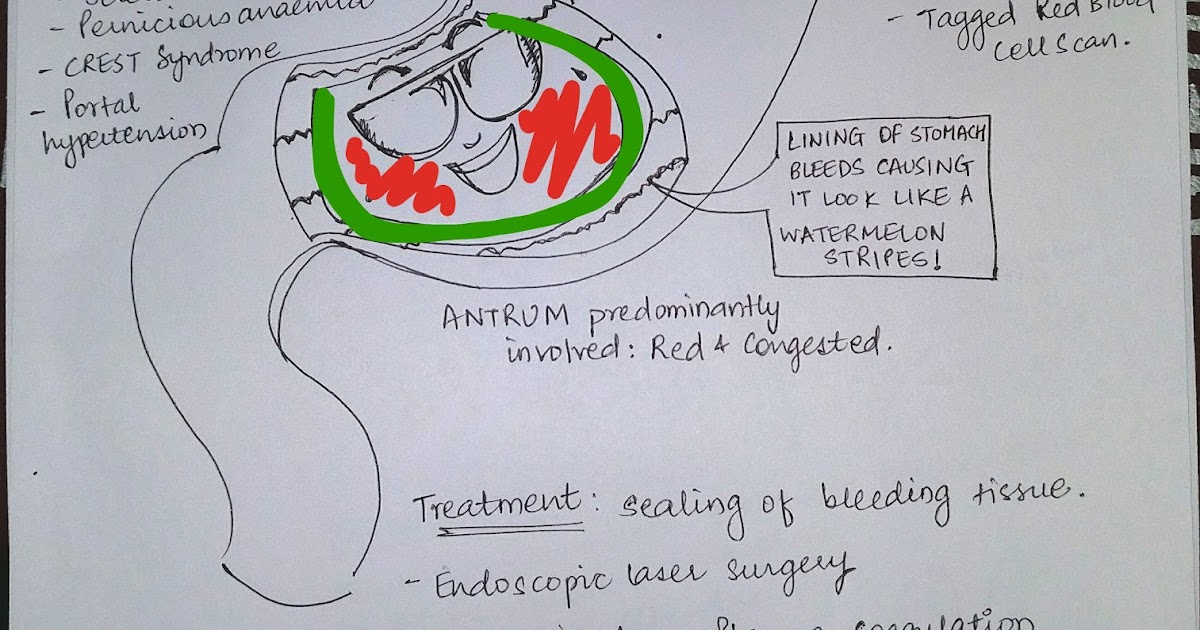 - Pernicious anaemia
- CREST Syndrome
- Portal
hypertension
- Tagged Red Blood
Cell Scan.
LINING OF STOMACH
BLEEDS CAUSING
IT LOOK LIKE A
WATERMELON
STRIPES!
ANTRUM predominantly
involved: Red & Congested.
Treatment: Sealing of bleeding tissue.
- Endoscopic laser surgery
coagulation